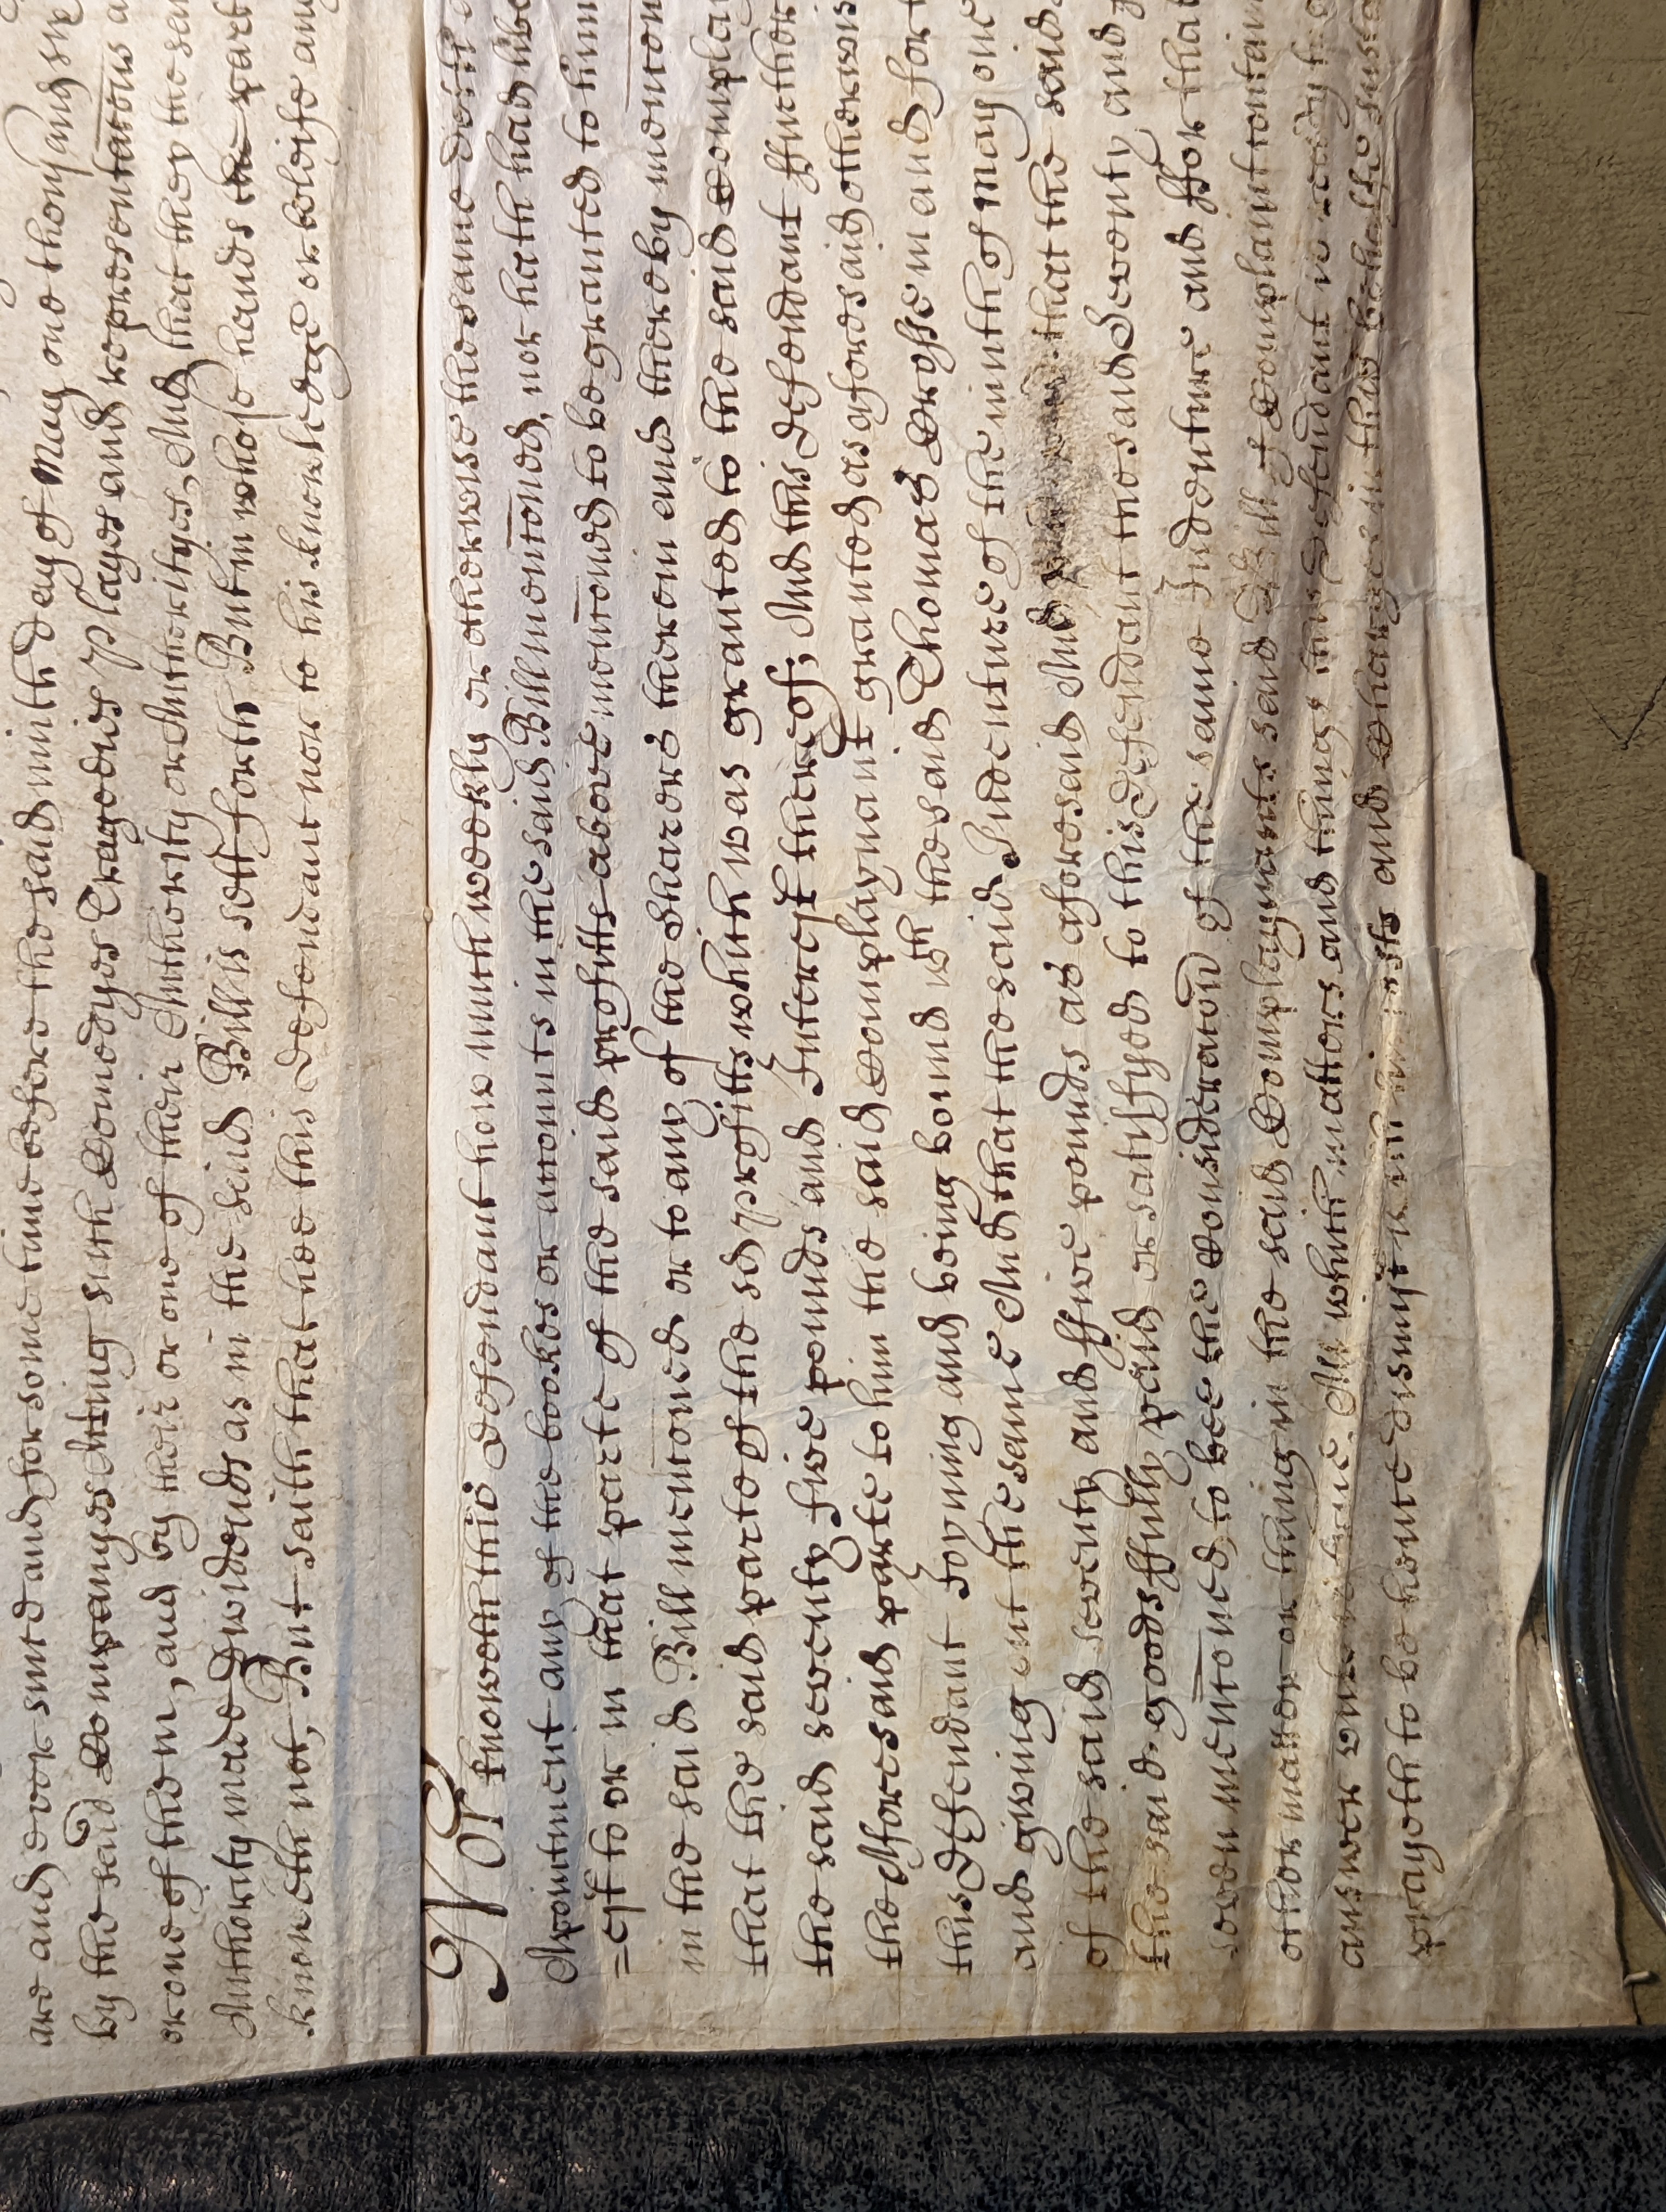 are and ever since and for some time before the said nineth day of May one thousand six
by the said Companyes Acting such Comedyes Tragedies Playes and representacons a
or one of them, and by their or one of their Authority or Authorityes, And that they the sa
Authority made Dividends as in the said Bill is sett forth But in whose hands the part
knoweth not, But saith that hee this Defendant nor to his knowledge or beliefe any
Nor knoweth this Defendant how much weekly or otherwise the same doth
Apointment any of the bookes or accounts in the said Bill mencioned, nor hath had libe
=est to or in that parte of the said profitts above mencioned to be granted to him
in the said Bill mencioned or to any of the Sharers therein and thereby mencion
that the said parte of the sd profitts which was granted to the said Complay
the said seventy five pounds and Interest thereof; And this Defendant ffurther
the Aforesaid parte to him the said Complaynant granted as aforesaid otherwis
this Defendant Joyning and being bound wth the said Thomas Crosse in and for
and giving out the same And that the said Indenture of the ninth of May one
of the said seventy and ffive pounds as aforesaid And that the said
the said goods ffully paid or satisfyed to this Defendant the said Seventy and
seen mencioned to bee the Consideracon of the same Indenture and ffor that
other matter or thing in the said Complaynants said Bill of Complaint contain
answer unto is true All which matters and things this Defendant is ready to
prayeth to be hence dismist with his costs and Charges in this behalfe susta